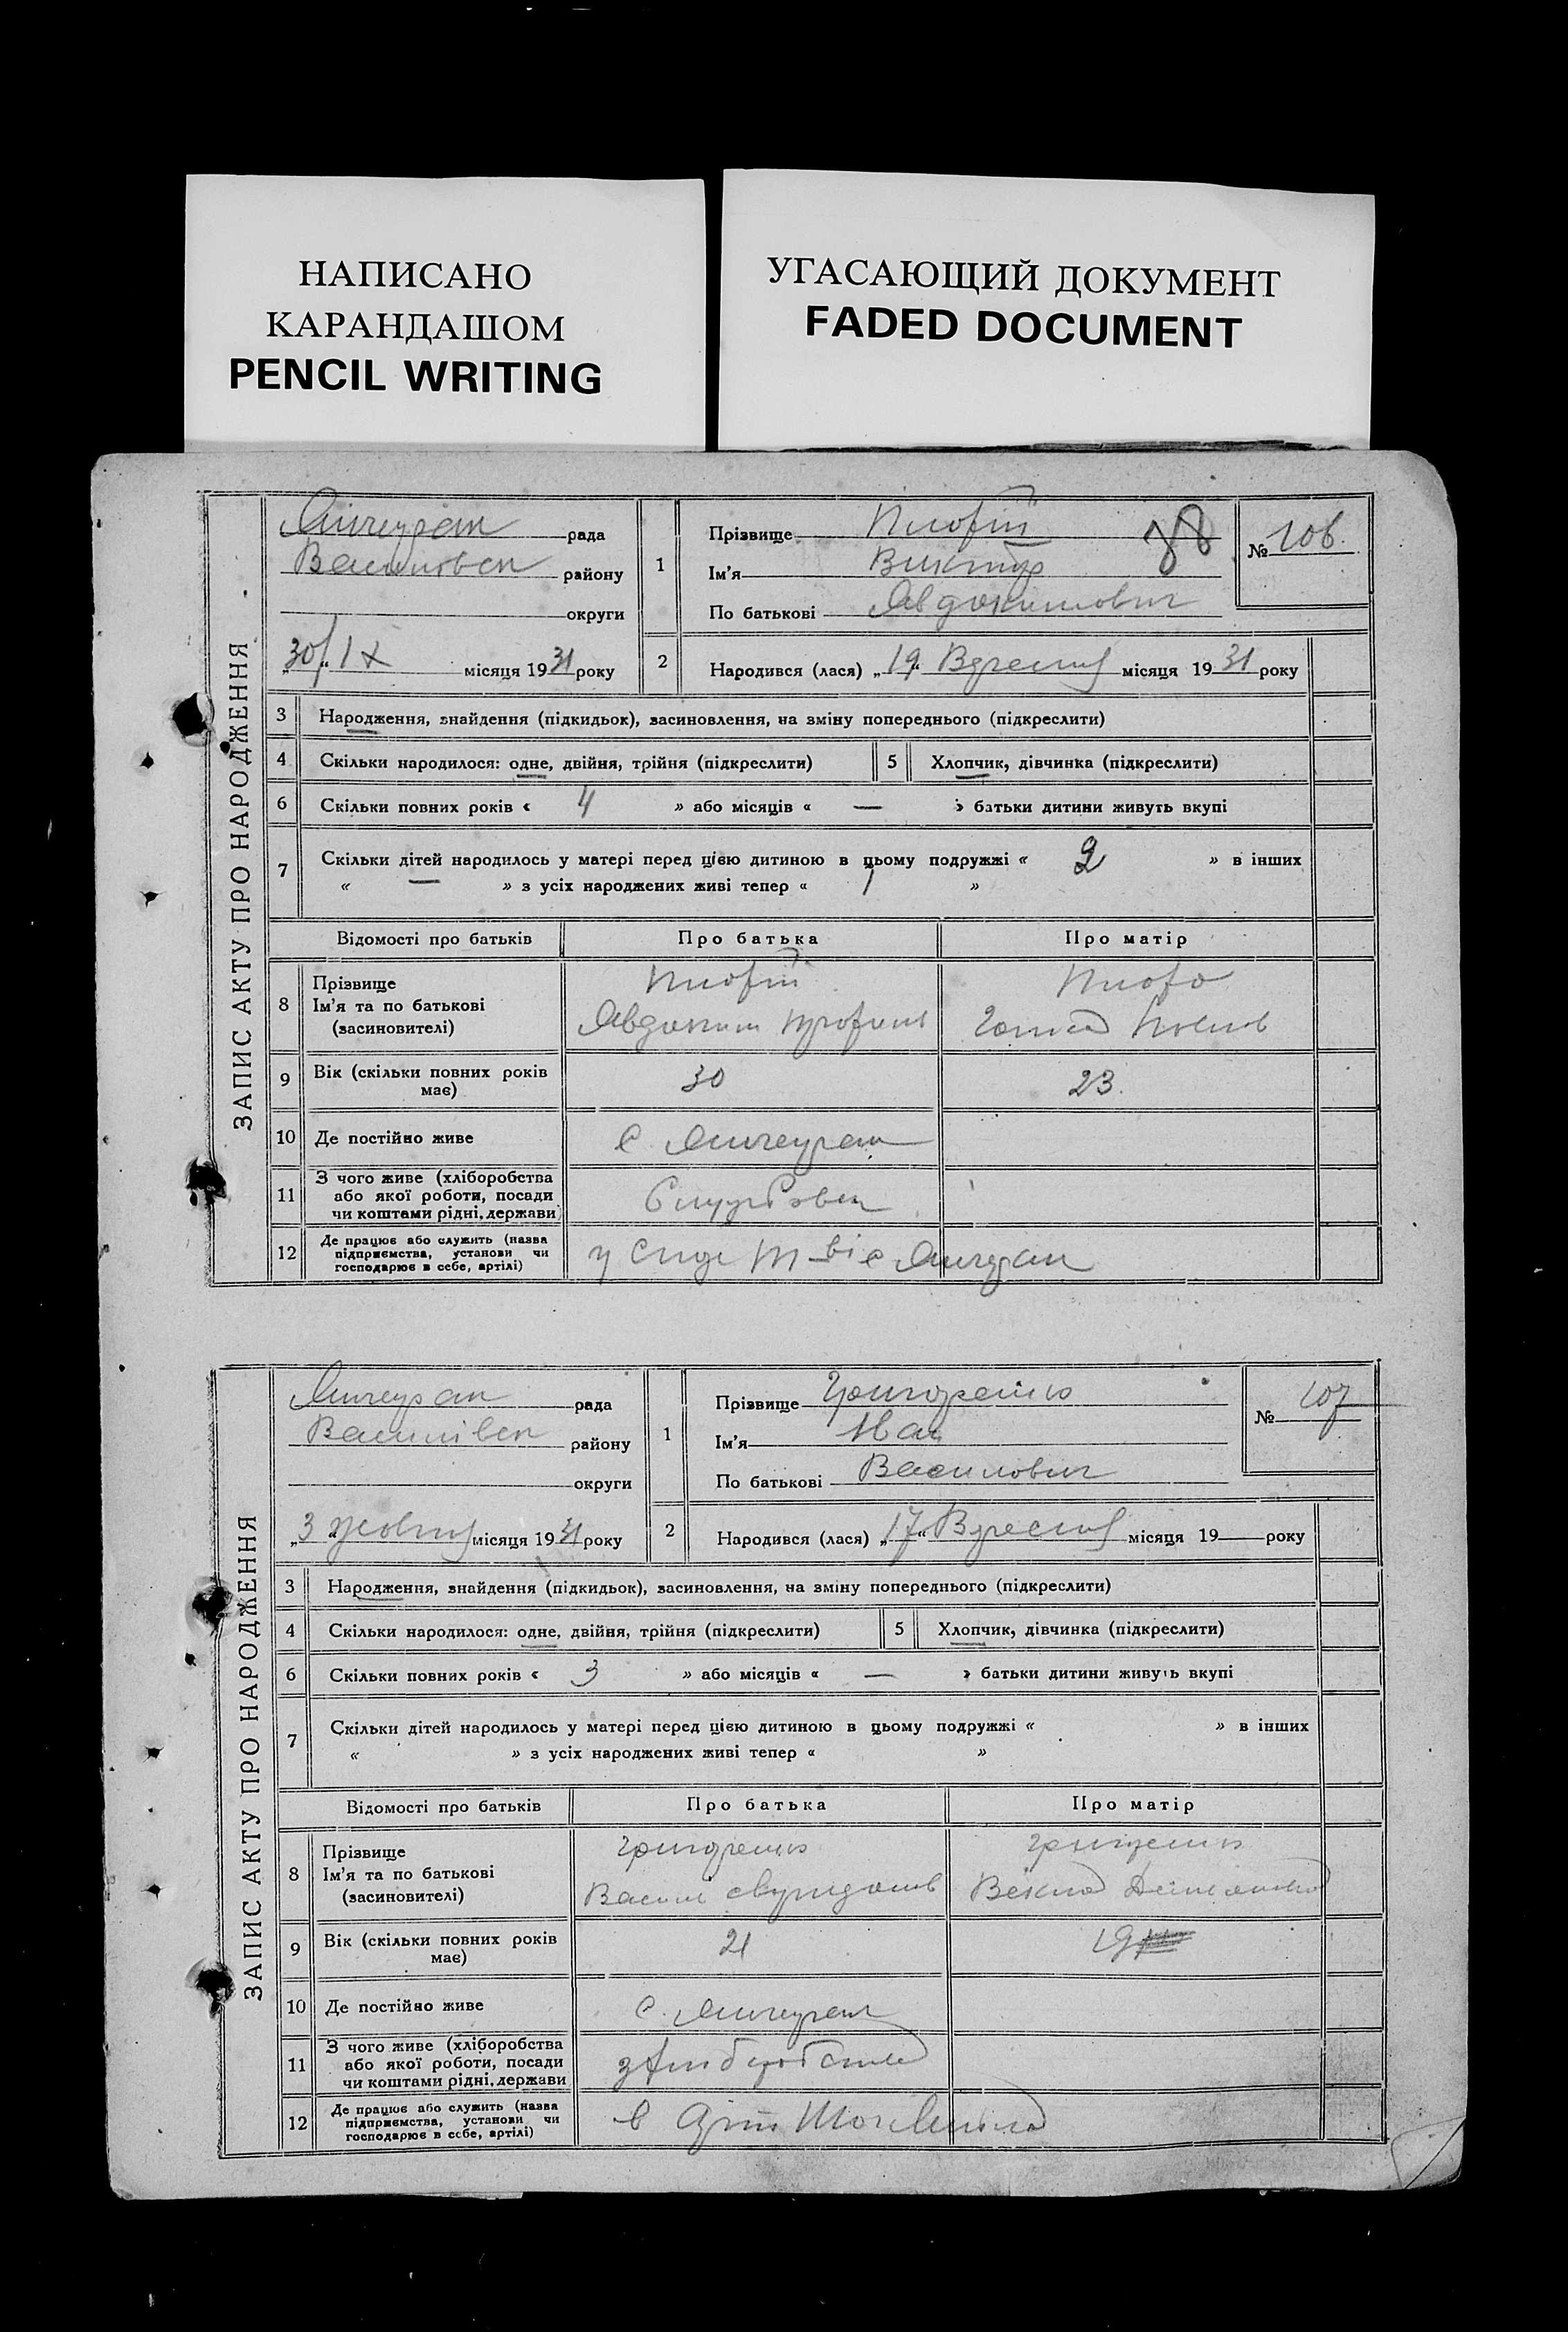 НАПИСАНО
КАРАНДАШОМ
PENCIL WRITING
УГАСАЮЩИЙ ДОКУМЕНТ
FADED DOCUMENT
ЗАПИС АКТУ ПРО НАРОДЖЕННЯ
рада
району
округи
30/IX місяця 1931 року
1
Прізвище
Ім'я Виктор
По батькові Авдокимович
№ 106.
2
Народився (лася) „19“ Вересня місяця 1931 року
3 Народження, знайдення (підкидьок), засиновлення, на зміну попереднього (підкреслити)
4 Скільки народилося: одне, двійня, трійня (підкреслити)
5 Хлопчик, дівчинка (підкреслити)
6 Скільки повних років « 4 » або місяців « — » батьки дитини живуть вкупі
7 Скільки дітей народилось у матері перед цією дитиною в цьому подружжі « 2 » в інших
« — » з усіх народжених живі тепер « 1 »
Відомості про батьків Про батька Про матір
8 Прізвище
Ім'я та по батькові
(засиновителі)
9 Вік (скільки повних років має) 30 23.
10 Де постійно живе с
11 З чого живе (хліборобства або якої роботи, посади чи коштами рідні, держави
12 Де працює або служить (назва підприємства, установи чи господарює в себе, артілі)
ЗАПИС АКТУ ПРО НАРОДЖЕННЯ
рада
Василівск району
округи
„3 жовтня місяця 1931 року
1
Прізвище Григоренко
Ім'я Иван
По батькові Василович
№ 107
2
Народився (лася) „17“ Вересня місяця 19 — року
3 Народження, знайдення (підкидьок), засиновлення, на зміну попереднього (підкреслити)
4 Скільки народилося: одне, двійня, трійня (підкреслити)
5 Хлопчик, дівчинка (підкреслити)
6 Скільки повних років « 3 » або місяців « — » батьки дитини живуть вкупі
7 Скільки дітей народилось у матері перед цією дитиною в цьому подружжі « » в інших
« » з усіх народжених живі тепер « »
Відомості про батьків Про батька Про матір
8 Прізвище Григоренко Григоренко
Ім'я та по батькові Васил
(засиновителі)
9 Вік (скільки повних років має) 21 19
10 Де постійно живе с.
11 З чого живе (хліборобства або якої роботи, посади чи коштами рідні, держави
12 Де працює або служить (назва підприємства, установи чи господарює в себе, артілі) в